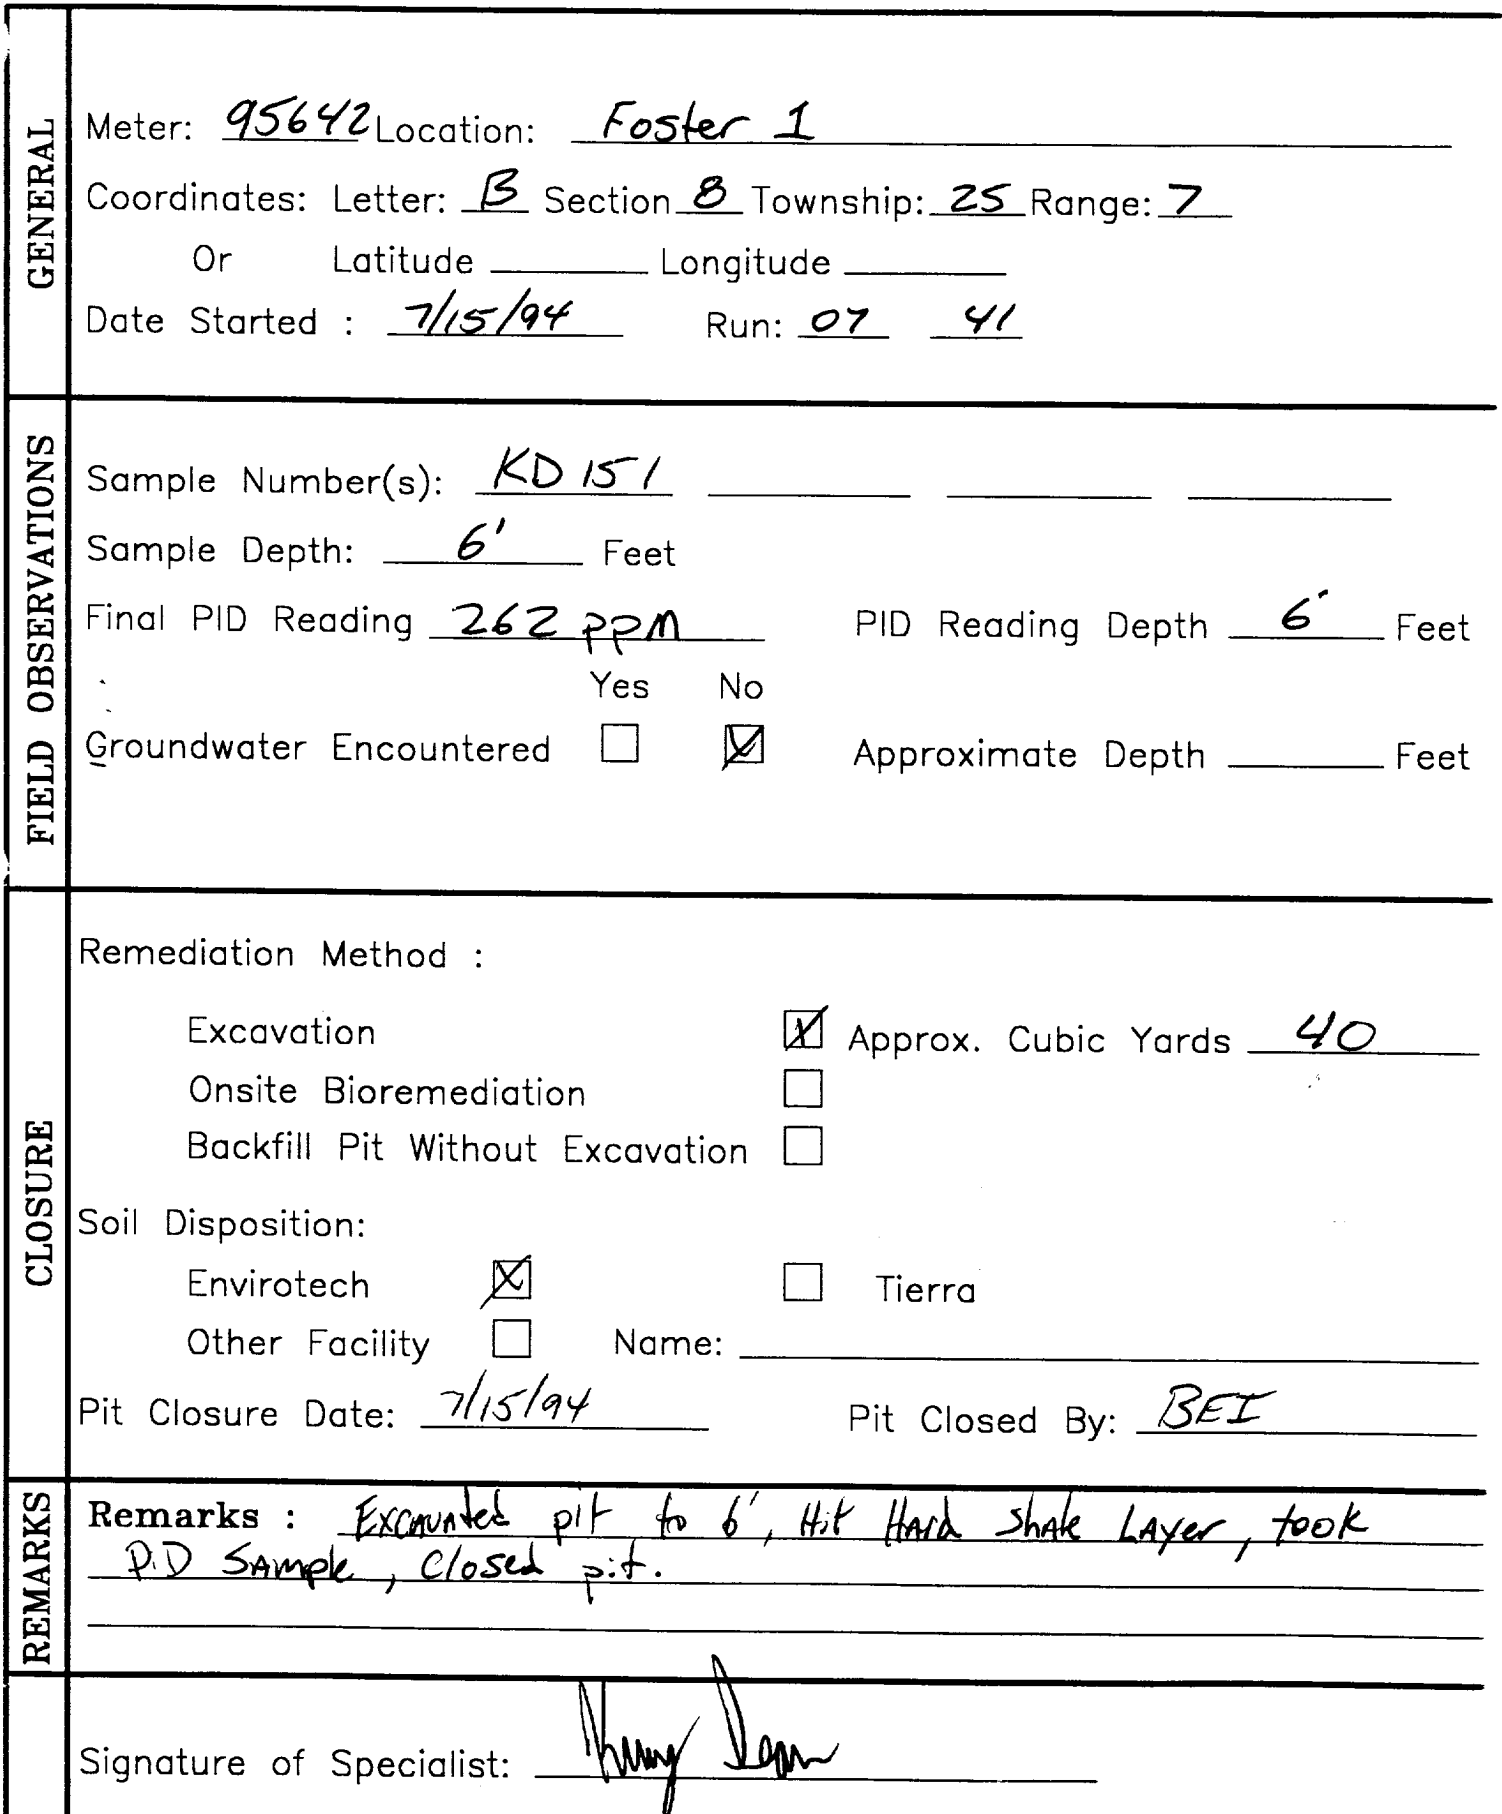 GENERAL
Meter: 95642 Location: Foster 1
Coordinates: Letter: B Section 8 Township: 25 Range: 7
Or Latitude Longitude
Date Started : 7/15/94 Run: 07 41
FIELD OBSERVATIONS
Sample Number(s): KD 151
Sample Depth: 6' Feet
Final PID Reading 262 ppm PID Reading Depth 6' Feet
Yes No
Groundwater Encountered Approximate Depth Feet
CLOSURE
Remediation Method :
Excavation Approx. Cubic Yards 40
Onsite Bioremediation
Backfill Pit Without Excavation
Soil Disposition:
Envirotech Tierra
Other Facility Name:
Pit Closure Date: 7/15/94 Pit Closed By: BEI
REMARKS
Remarks : Excavated pit to 6', Hit Hard Shale Layer, took
PID Sample, Closed pit.
Signature of Specialist: